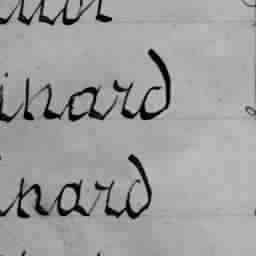 inard
inard